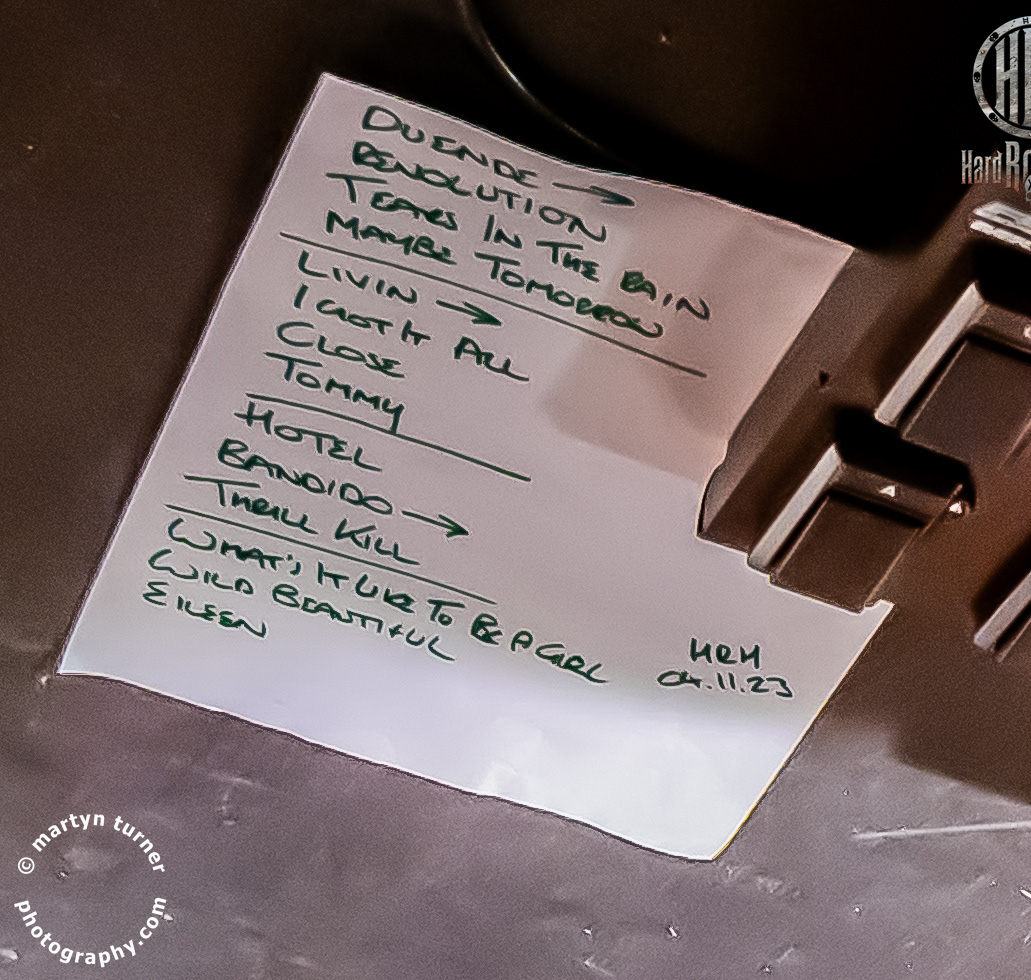 DUENDE →
REVOLUTION
TEARS IN THE RAIN
MAYBE TOMORROW
LIVIN →
I GOT IT ALL
CLOSE
TOMMY
HOTEL
BANDIDO →
THRILL KILL
WHAT'S IT LIKE TO BE A GIRL
WILD BEAUTIFUL
EILEEN
HRH
04.11.23
Hard
© martyn turner
photography.com